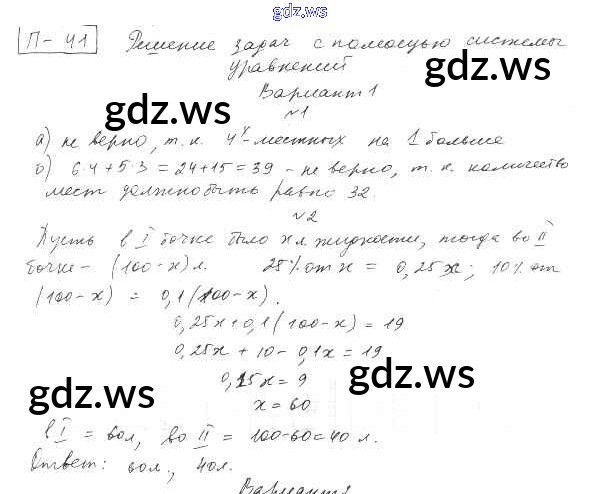 gdz.ws
П-41 Решение задач с помощью системы
уравнений
Вариант 1
№1
а) не верно, т.к. 4х-местных на 1 больше
б) 6·4+5·3=24+15=39 - не верно, т.к. количество
мест должно быть равно 32.
№2
Пусть в I бочке было х л жидкости, тогда во II
бочке - (100-х) л. 25% от х = 0,25х; 10% от
(100-х) = 0,1(100-х).
0,25х+0,1(100-х)=19
0,25х+10-0,1х=19
0,15х=9
х=60
в I = 60л, во II = 100-60=40 л.
Ответ: 60л., 40л.
gdz.ws
gdz.ws
gdz.ws
gdz.ws